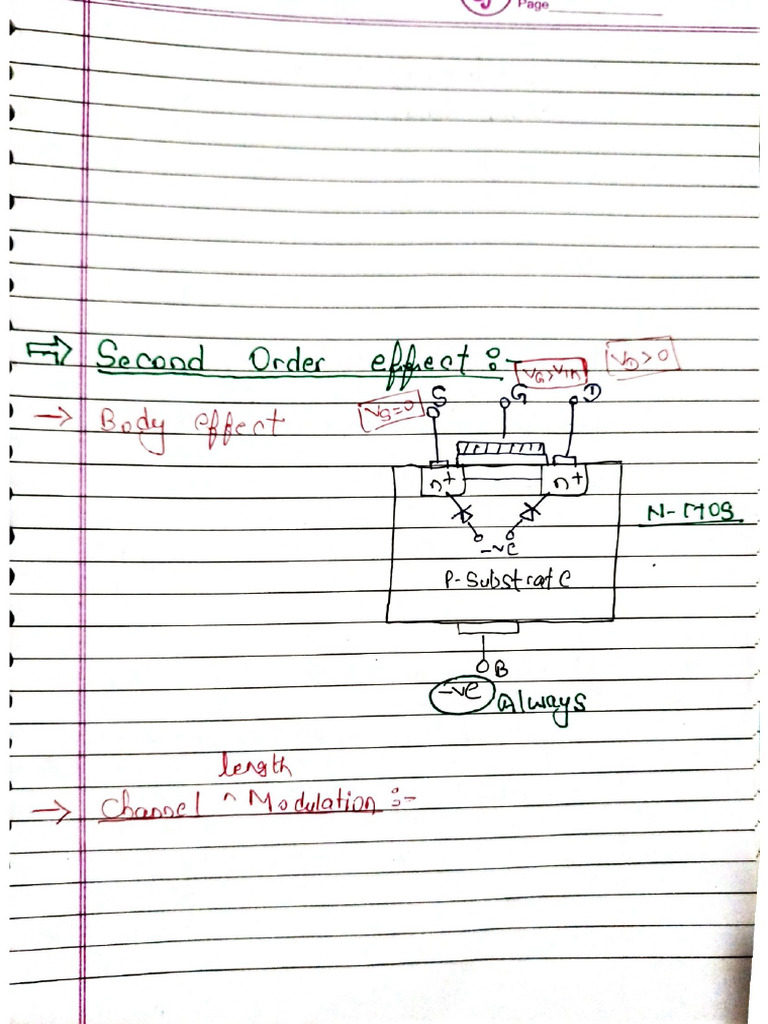 Page
⇒ Second Order effect :-
VG>VTh
VD>0
→ Body effect
VS=0
S
G
D
n+
n+
N-MOS
-ve
P-Substrate
B
-ve Always
length
→ Channel ^ Modulation :-